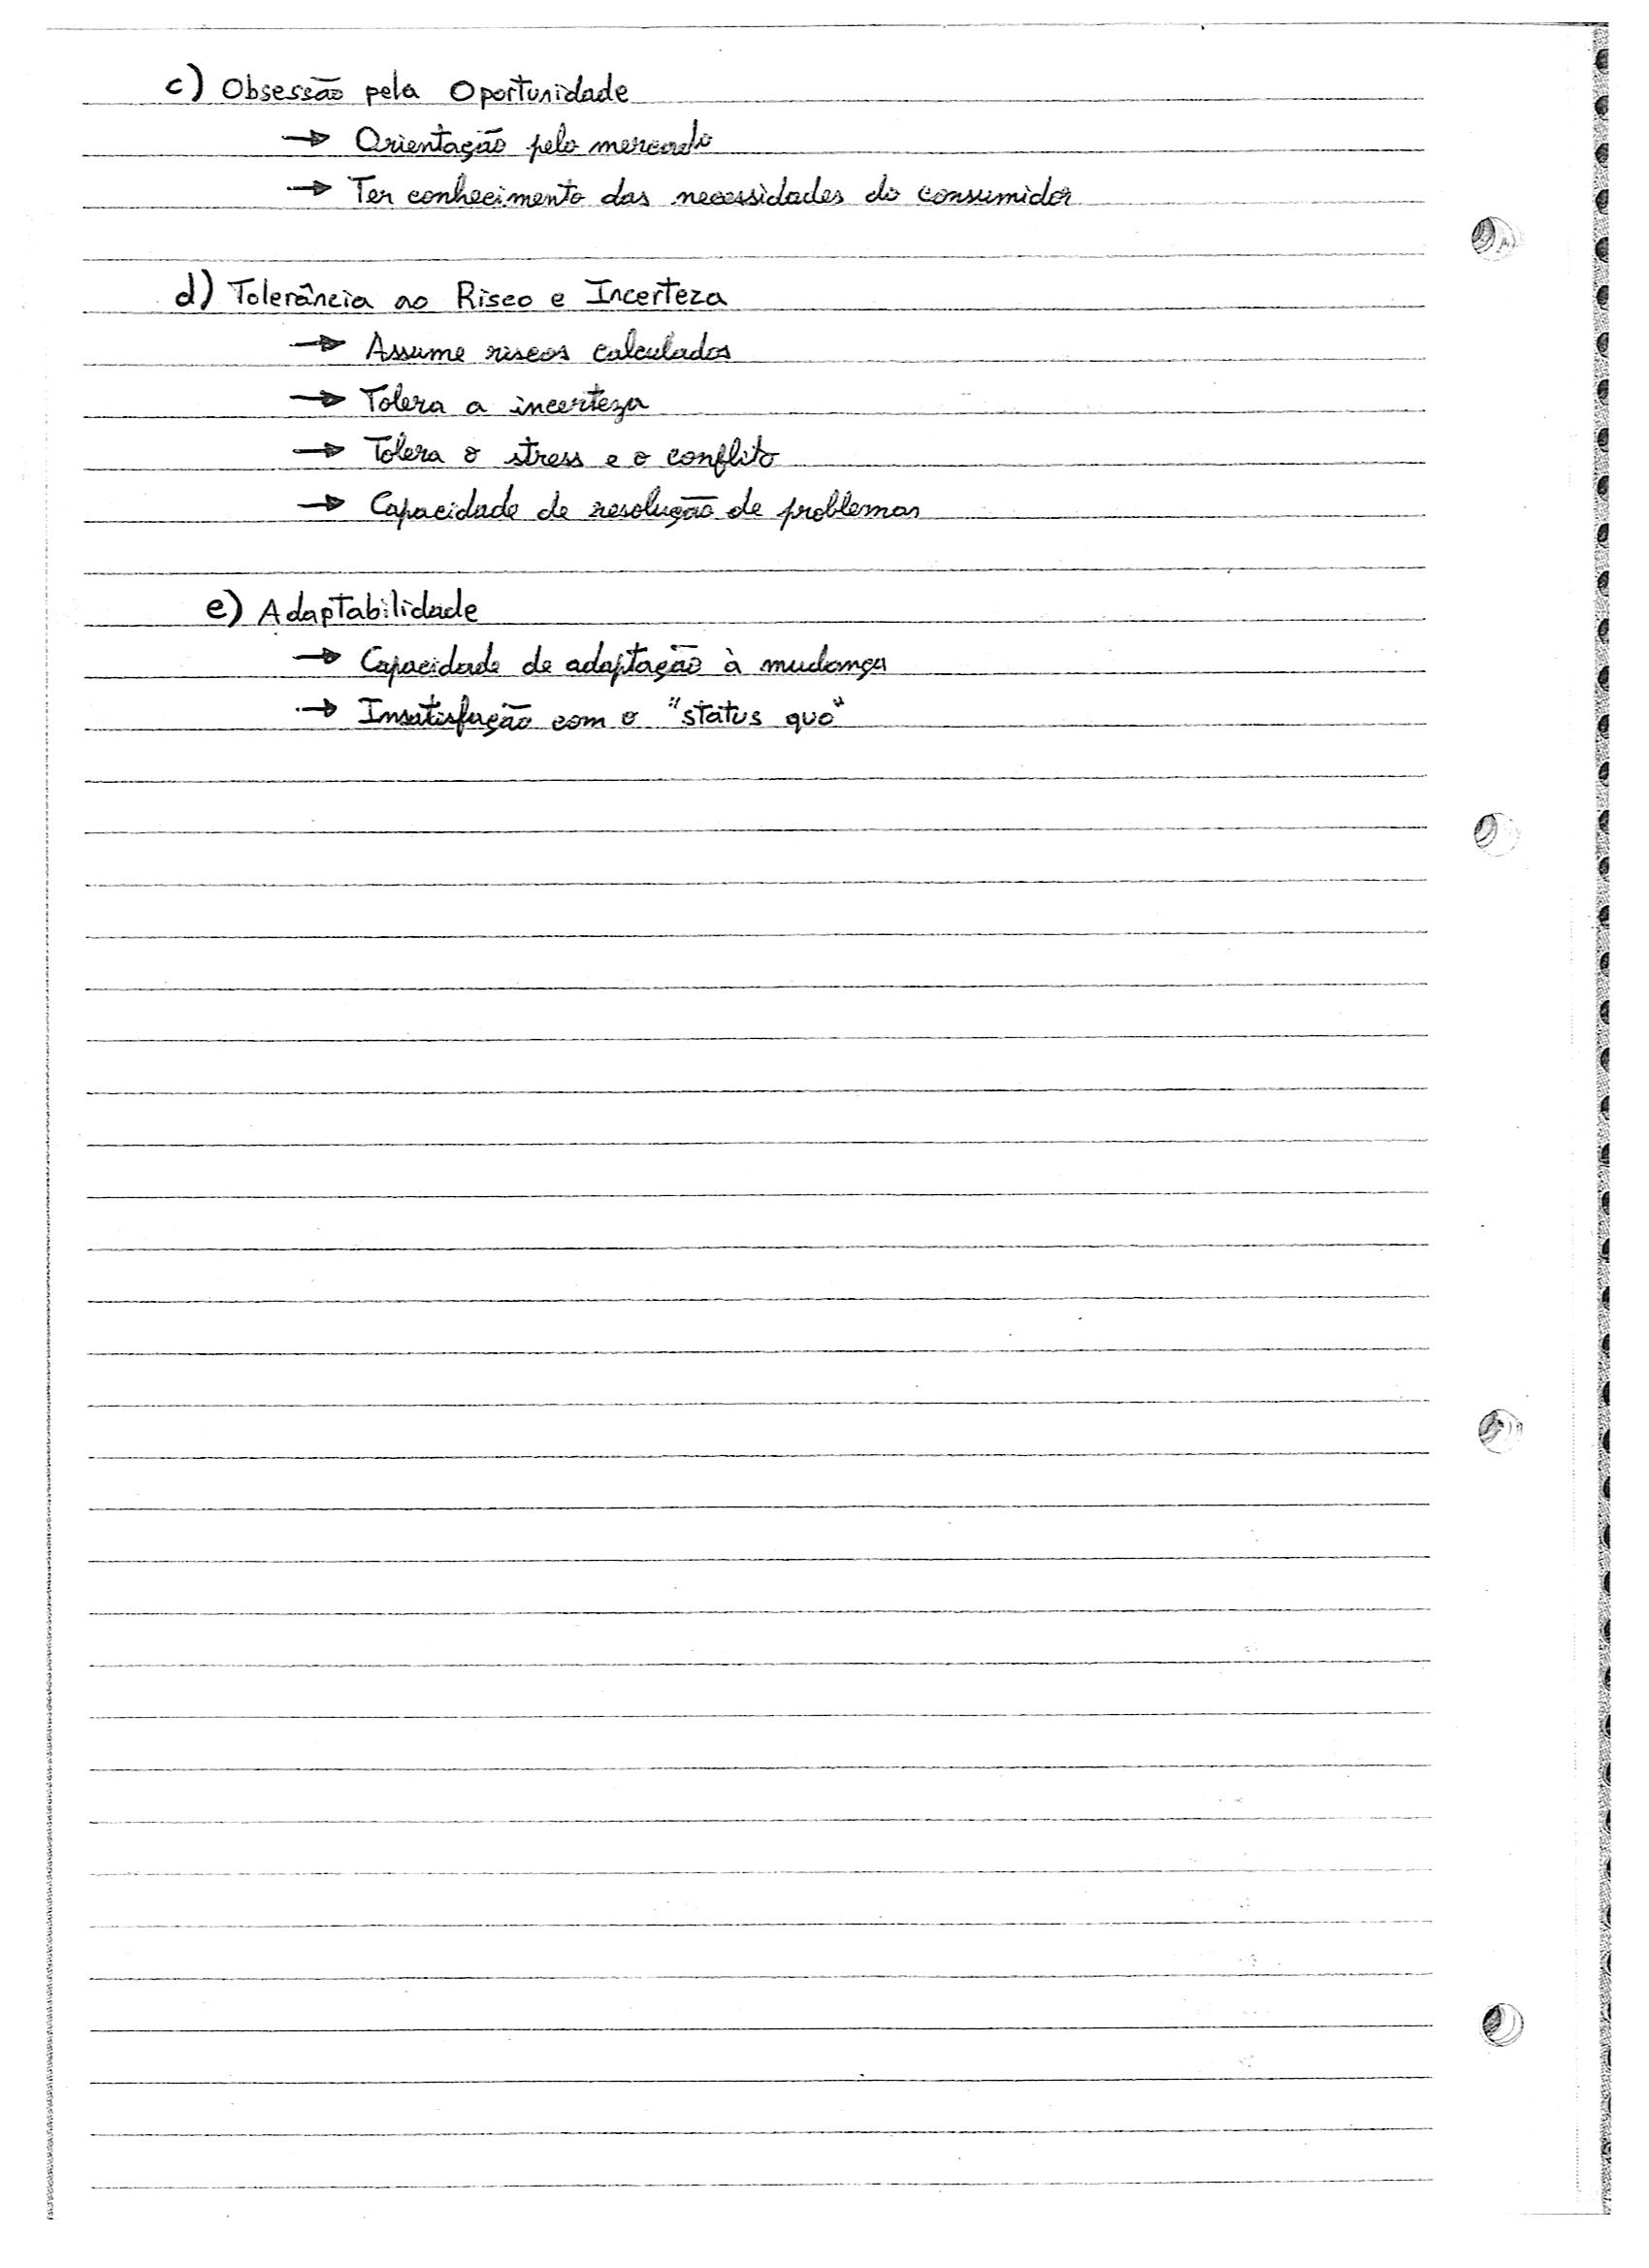 c) Obsessão pela Oportunidade
→ Orientação pelo mercado
→ Ter conhecimento das necessidades do consumidor
d) Tolerância ao Risco e Incerteza
→ Assume riscos calculados
→ Tolera a incerteza
→ Tolera o stress e o conflito
→ Capacidade de resolução de problemas
e) Adaptabilidade
→ Capacidade de adaptação à mudança
→ Insatisfação com o "status quo"